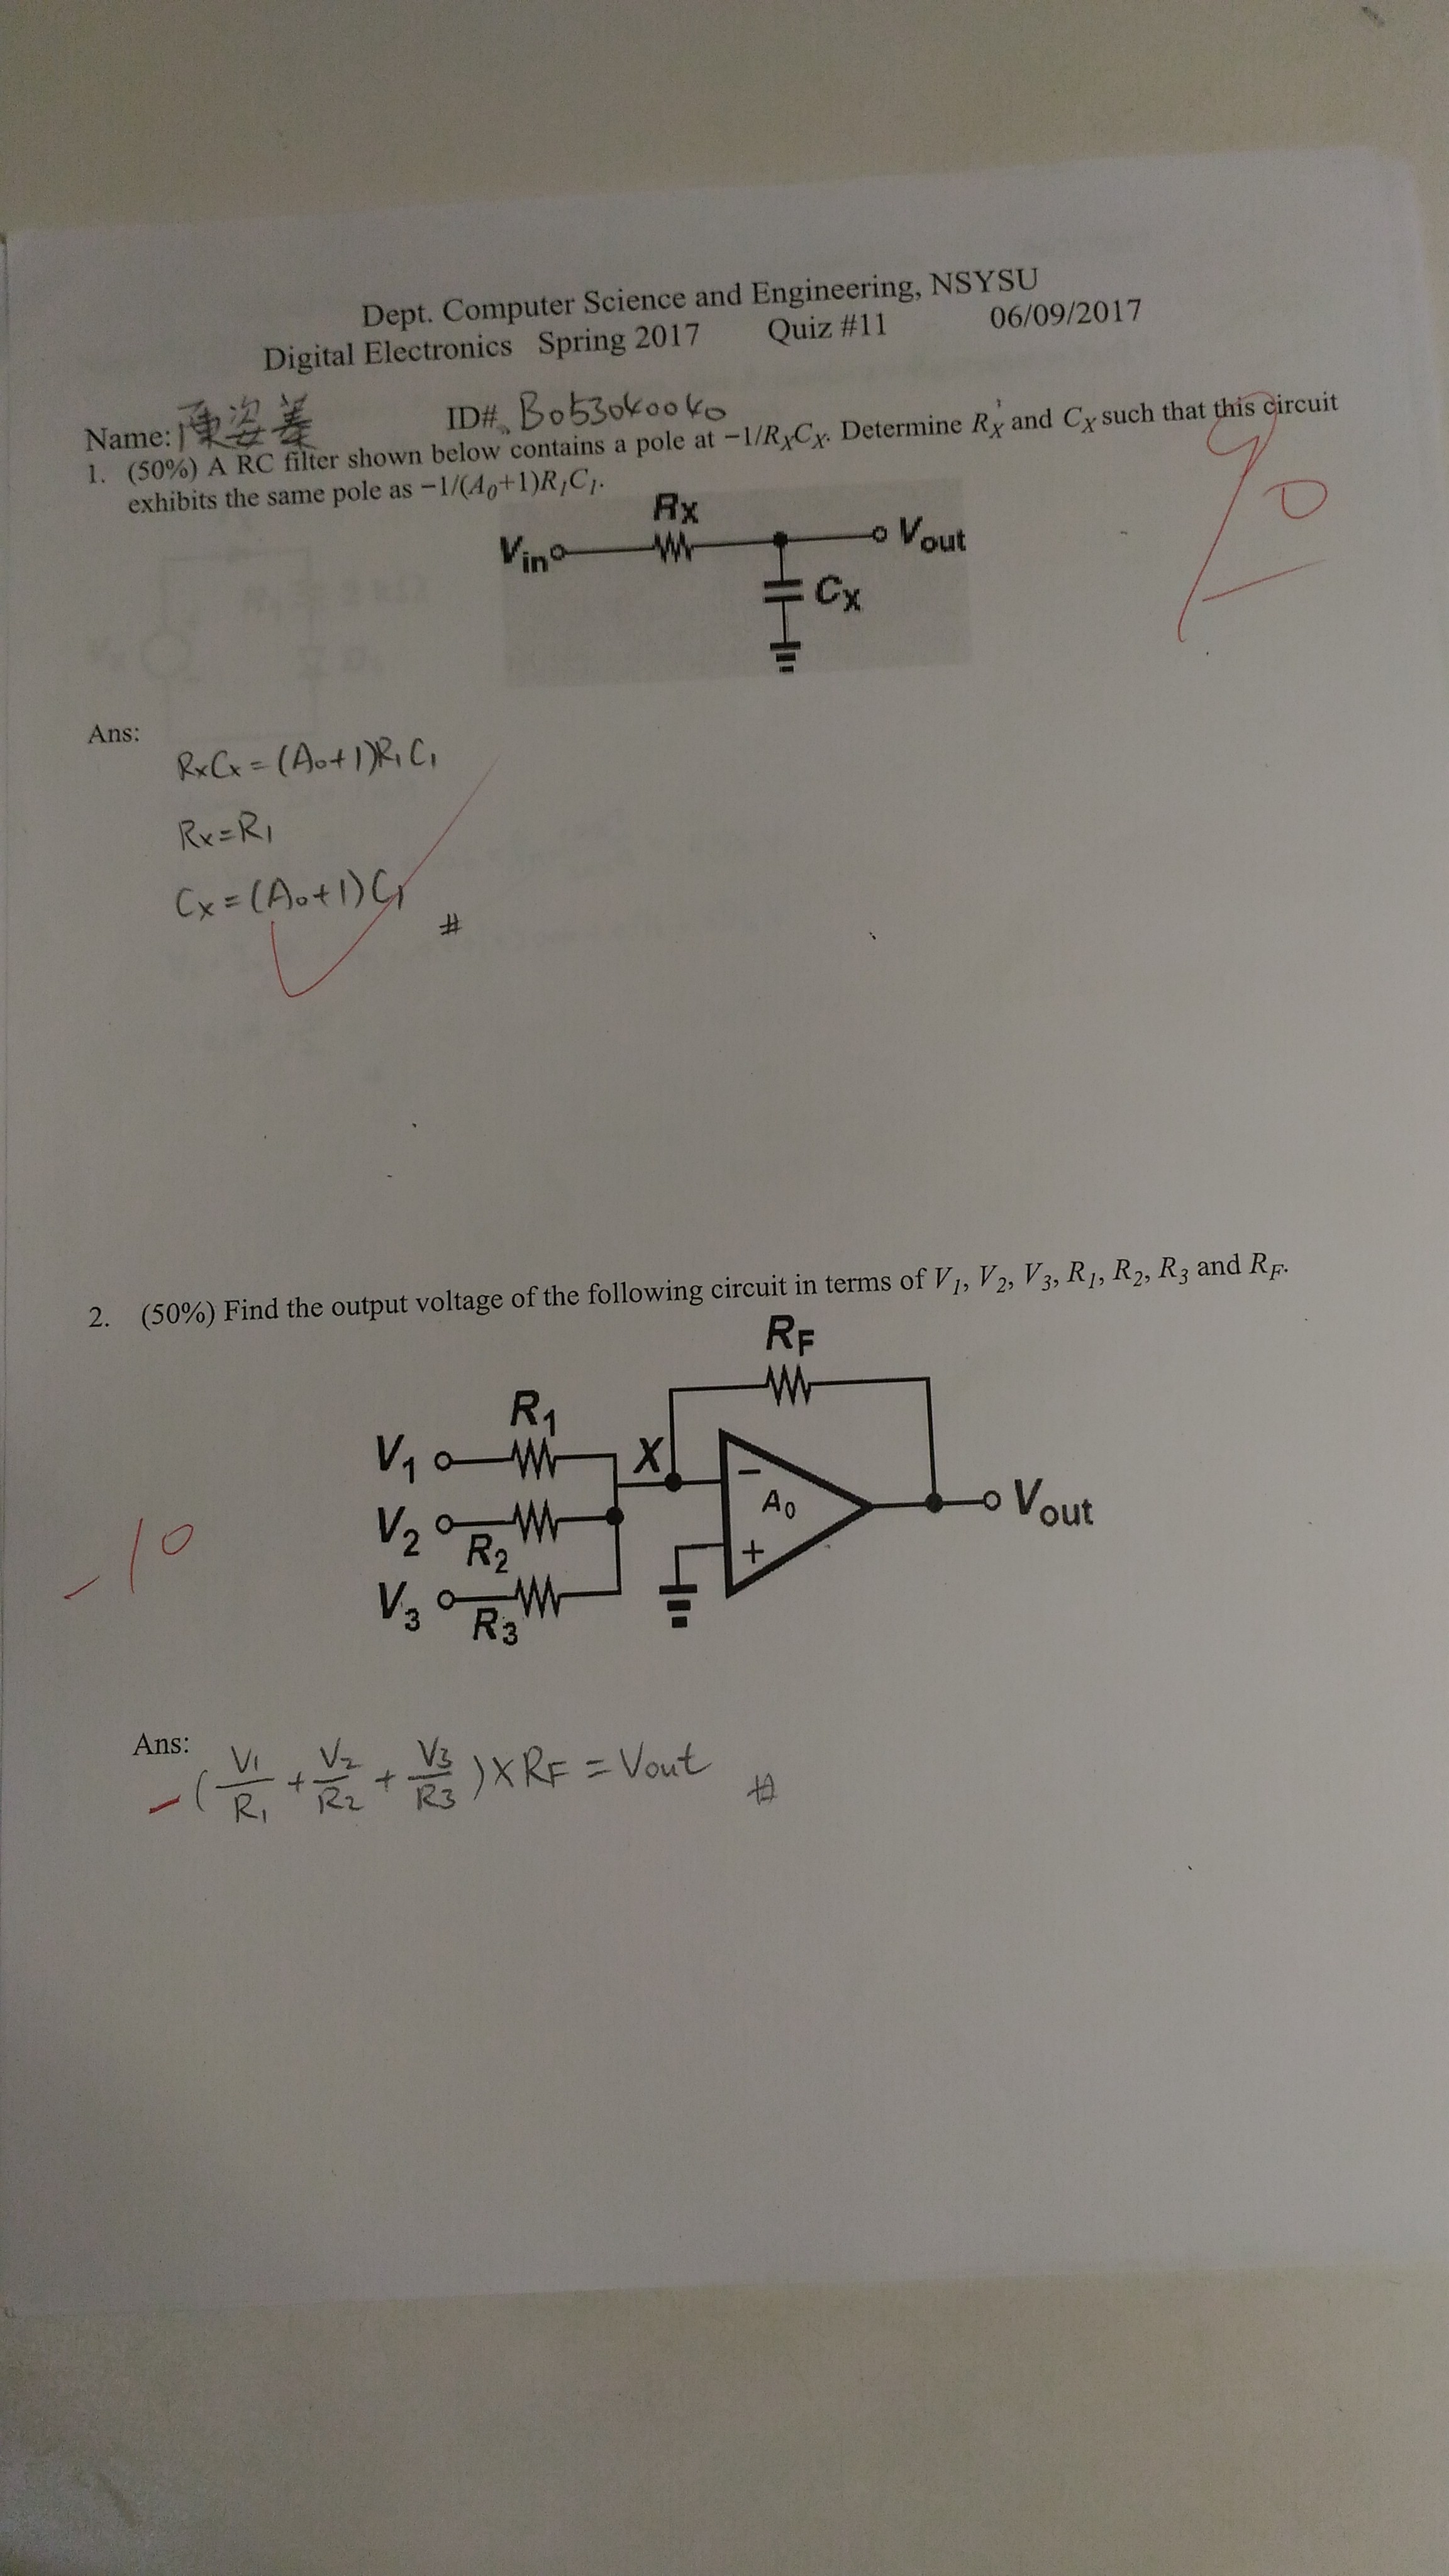 Dept. Computer Science and Engineering, NSYSU
Digital Electronics Spring 2017 Quiz #11 06/09/2017
Name: 陳姿蓁 ID#: B053040040
1. (50%) A RC filter shown below contains a pole at −1/RXCX. Determine RX and CX such that this circuit
exhibits the same pole as −1/(A0+1)R1C1.
90
RX
Vin Vout
CX
Ans:
RxCx = (A0+1)R1C1
Rx=R1
Cx = (A0+1)C1 #
2. (50%) Find the output voltage of the following circuit in terms of V1, V2, V3, R1, R2, R3 and RF.
RF
R1
V1 X −
A0
V2 Vout
R2
+
V3
R3
-10
Ans:
-(V1/R1 + V2/R2 + V3/R3) × RF = Vout #